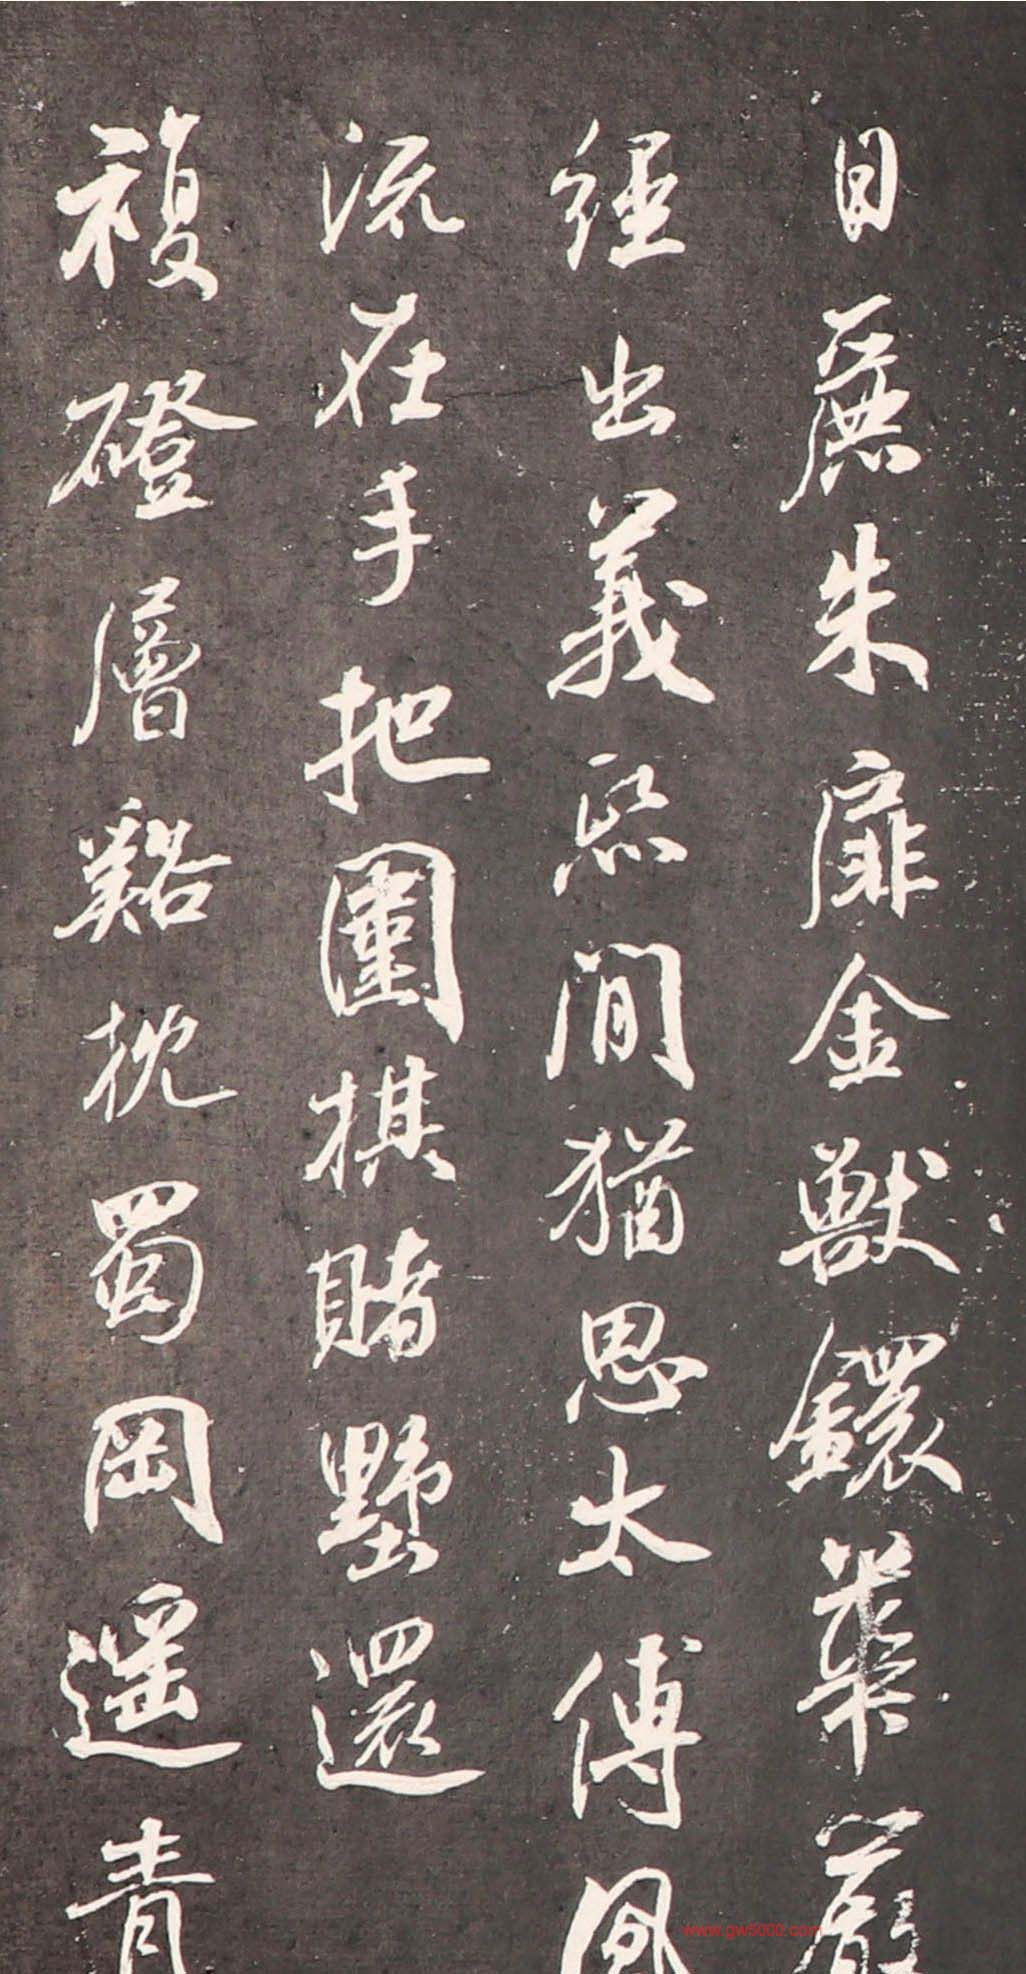 日麗朱扉金獸鐶華嚴
經出義熙間猶思太傅風
流在手把圍棋賭墅還
複磴層谿枕蜀岡遥青
www.gw5000.com